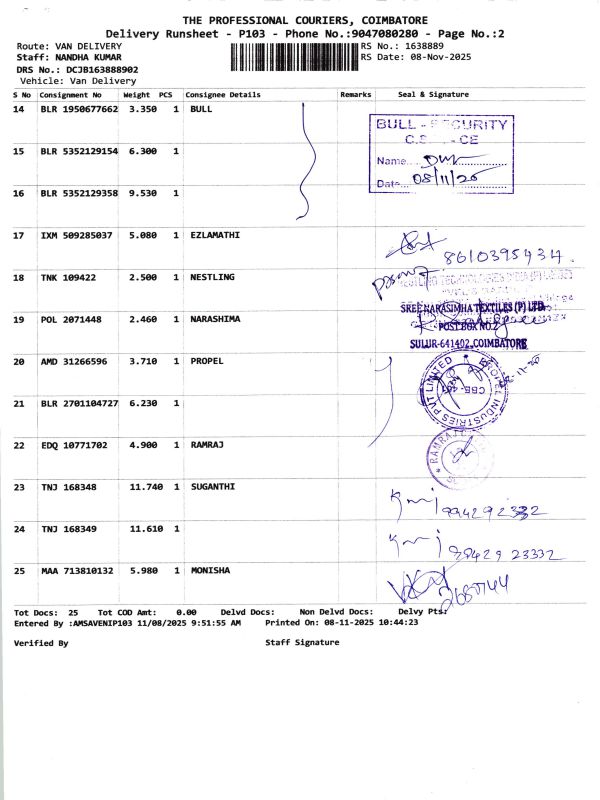 THE PROFESSIONAL COURIERS, COIMBATORE
Delivery Runsheet - P103 - Phone No.:9047080280 - Page No.:2
Route: VAN DELIVERY RS No.: 1638889
Staff: NANDHA KUMAR RS Date: 08-Nov-2025
DRS No.: DCJB163888902
Vehicle: Van Delivery
S No Consignment No Weight PCS Consignee Details Remarks Seal & Signature
14 BLR 1950677662 3.350 1 BULL
BULL - SECURITY
Name
Date 08/11/25
15 BLR 5352129154 6.300 1
16 BLR 5352129358 9.530 1
17 IXM 509285037 5.080 1 EZLAMATHI
8610395434.
18 TNK 109422 2.500 1 NESTLING
19 POL 2071448 2.460 1 NARASHIMA
SREE NARASIMHA TEXTILES (P) LTD
POST BOX NO.2
SULUR-641402, COIMBATORE
20 AMD 31266596 3.710 1 PROPEL
PROPEL INDUSTRIES PVT LIMITED
21 BLR 2701104727 6.230 1
22 EDQ 10771702 4.900 1 RAMRAJ
RAMRAJ
23 TNJ 168348 11.740 1 SUGANTHI
24 TNJ 168349 11.610 1
99429 23332
25 MAA 713810132 5.980 1 MONISHA
Tot Docs: 25 Tot COD Amt: 0.00 Delvd Docs: Non Delvd Docs: Delvy Pts:
Entered By :AMSAVENIP103 11/08/2025 9:51:55 AM Printed On: 08-11-2025 10:44:23
Verified By Staff Signature